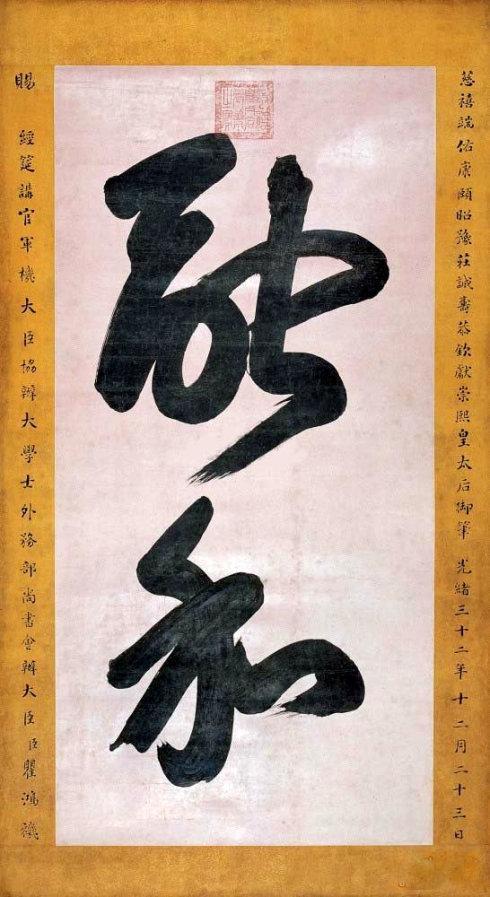 慈禧端佑康頤昭豫莊誠壽恭欽獻崇熙皇太后御筆 光緒三十二年十二月二十三日
融和
賜 經筵講官軍機大臣協辦大學士外務部尚書會辦大臣臣瞿鴻禨